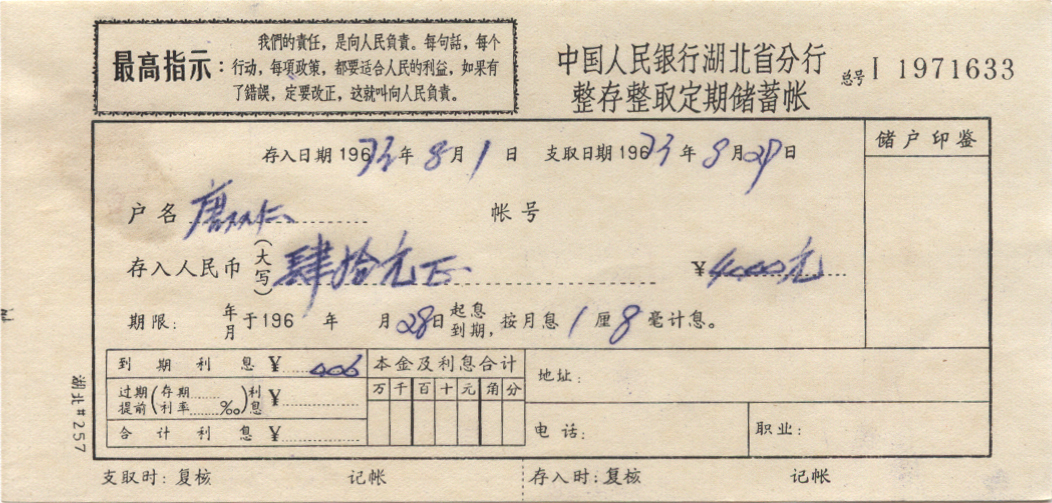 最高指示：
我們的責任，是向人民負責。每句話，每个
行动，每項政策，都要适合人民的利益，如果有
了錯誤，定要改正，这就叫向人民負責。
中国人民银行湖北省分行
整存整取定期储蓄帐
总号 I 1971633
存入日期 196 73年 8月 1日 支取日期 196 73年 8月 29日
储户印鉴
户名 唐 帐号
存入人民币（大写）肆拾元正 ¥4000元
期限： 年月 于196 年 月28日 起息到期，按月息 1 厘 8 毫计息。
到期利息 ¥ 006
本金及利息合计
万 千 百 十 元 角 分
地址：
过期提前（存期利率 ‰）利息 ¥
合计利息 ¥
电话： 职业：
湖北#257
支取时：复核 记帐 存入时：复核 记帐